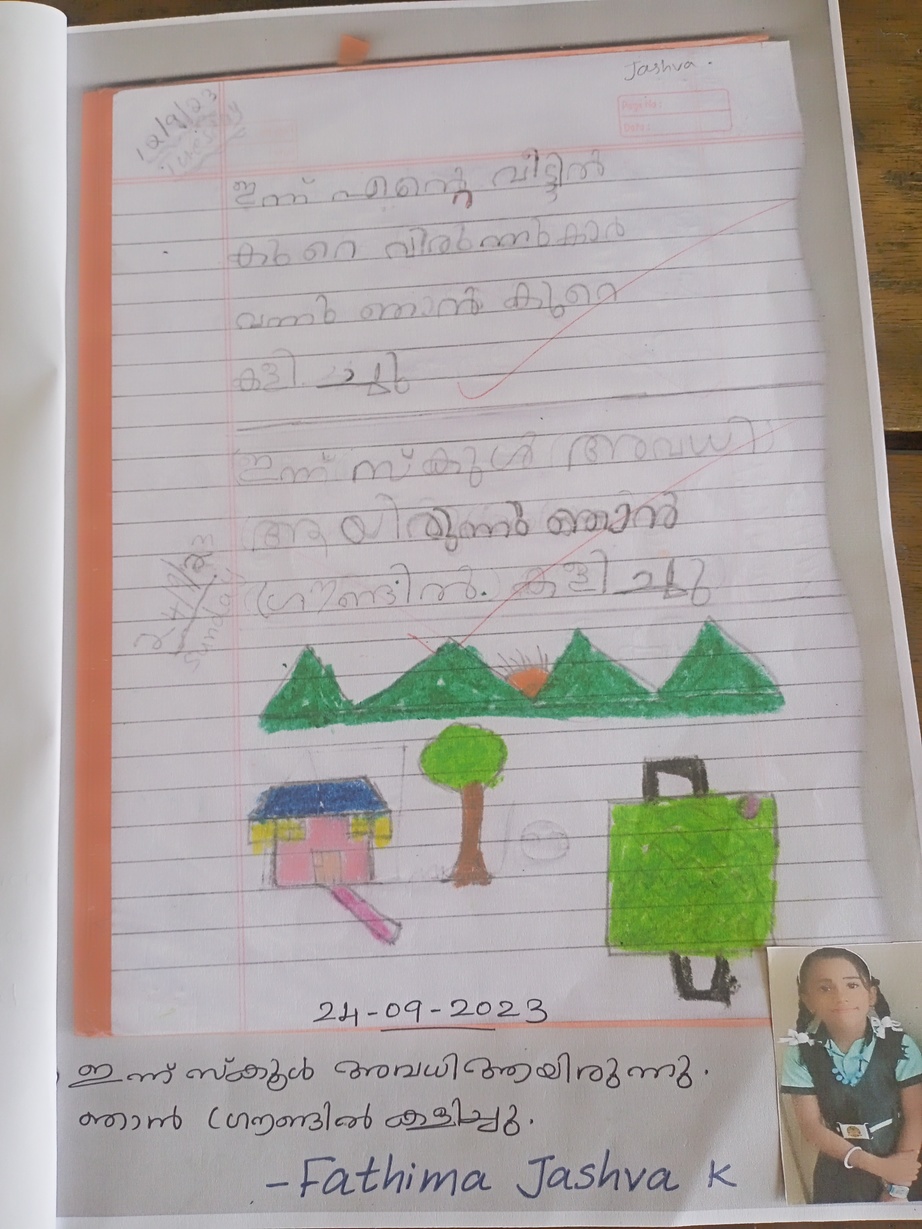 Jashva.
Page No:
Date:
12/9/23
ഇന്ന് എന്റെ വീട്ടിൽ
കുറെ വിരുന്നുകാർ
വന്നു ഞാൻ കുറെ
കളിച്ചു
ഇന്ന് സ്കൂൾ അവധി
ആയിരുന്നു ഞാൻ
ഗ്രൗണ്ടിൽ. കളിച്ചു
24/9/23
Sunday
24-09-2023
ഇന്ന് സ്കൂൾ അവധി ആയിരുന്നു.
ഞാൻ ഗ്രൗണ്ടിൽ കളിച്ചു.
-Fathima Jashva K